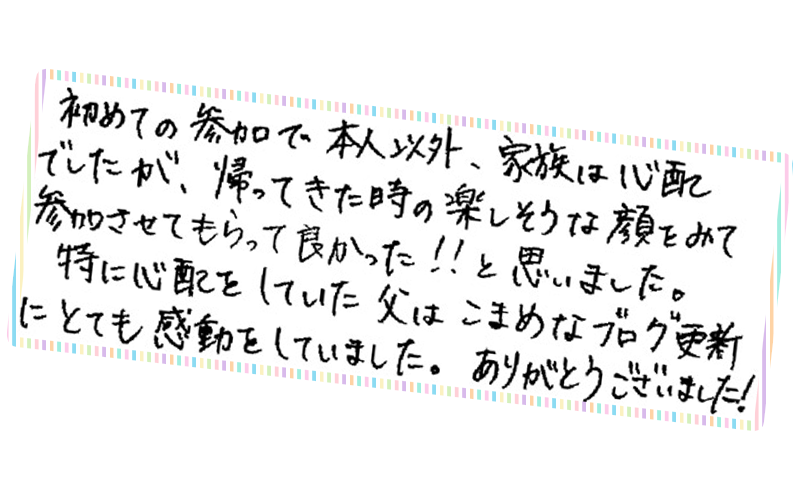 初めての参加で本人以外、家族は心配
でしたが、帰ってきた時の楽しそうな顔をみて
参加させてもらって良かった!!と思いました。
特に心配をしていた父はこまめなブログ更新
にとても感動をしていました。ありがとうございました!